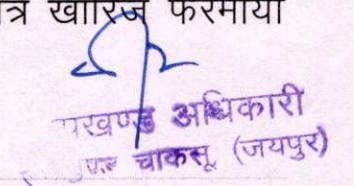 त्र खारिज फरमाया
पखण्ड अधिकारी
चाकसू (जयपुर)